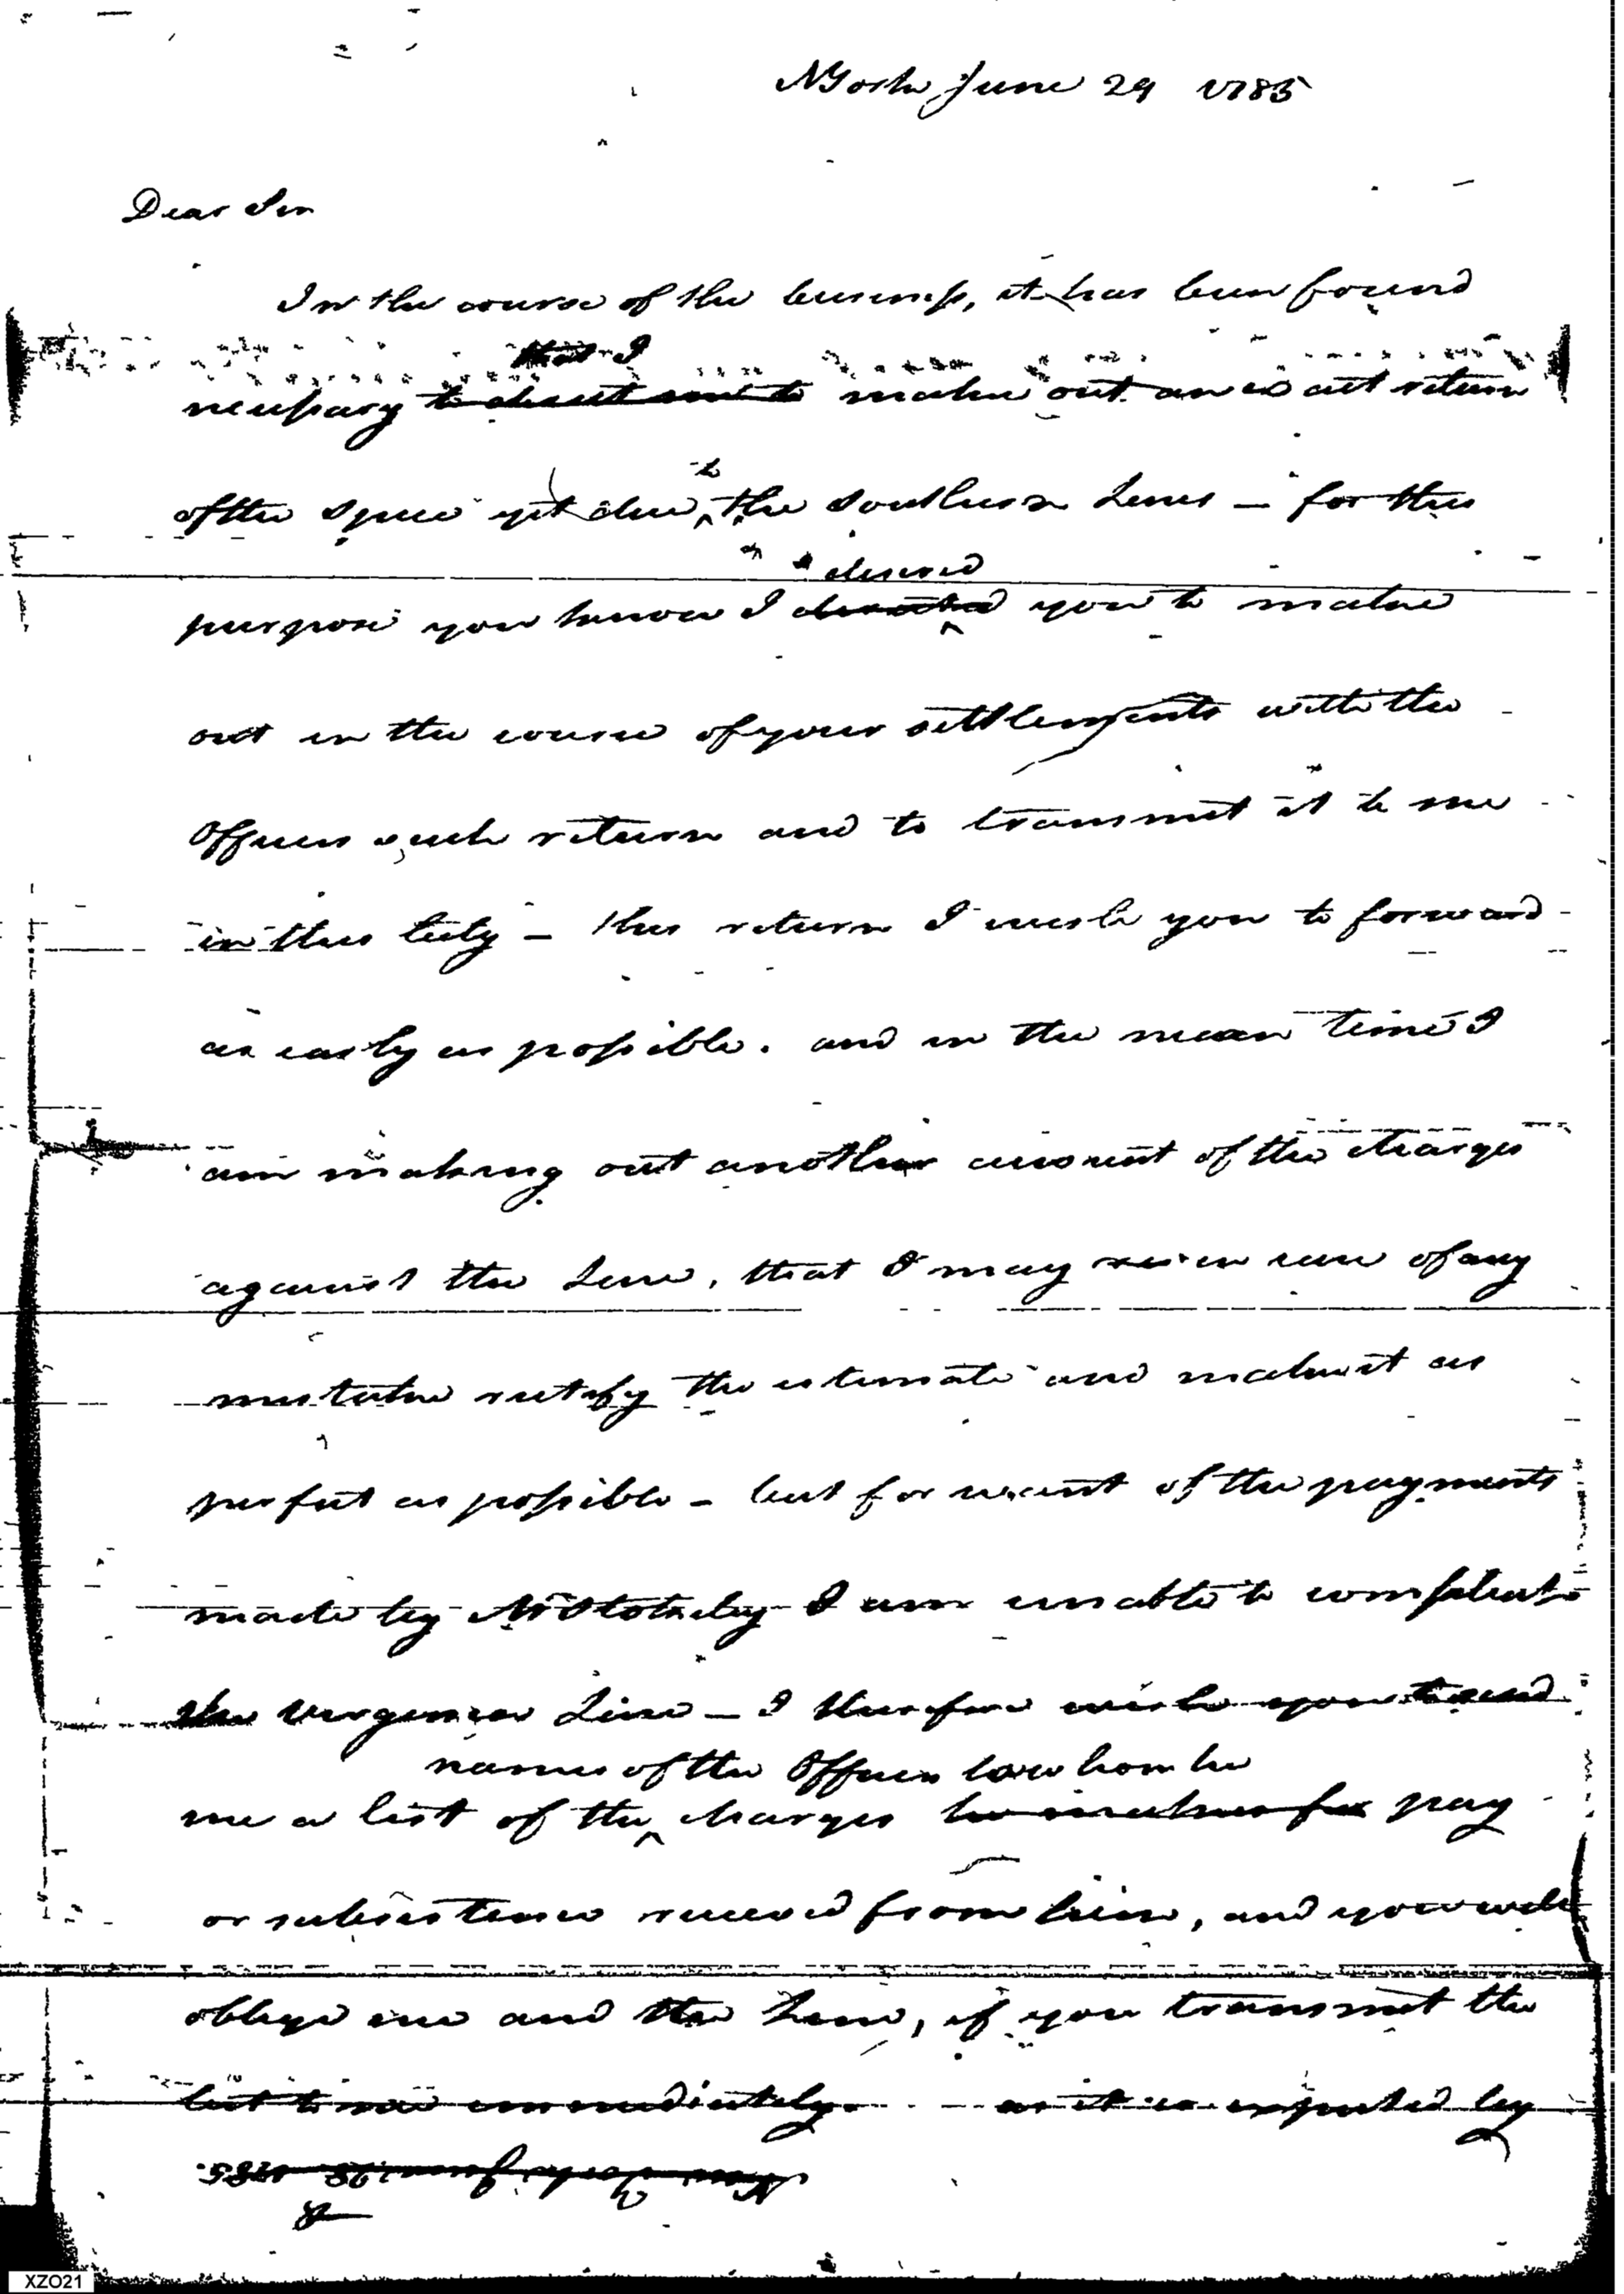 NYork June 29 1785
Dear Sir
In the course of the business, it has been found
that I
necessary to direct me to make out an exact return
of the specie yet due
to
the Southern Lines — for this
desired
purpose you know I directed you to make
out in the course of your settlements with the
Officers such return and to transmit it to me
in this City — this return I wish you to forward
as early as possible. and in the mean time I
am making out another account of the charges
against the Line, that I may in case of any
mistake rectify the estimate and make it as
perfect as possible — but for want of the payments
made by Mr Stokeley I am unable to compleat
the Virginia Line — I therefore wish you to send
names of the Officers to whom he
me a list of the charges he makes for pay
or subsistence received from him, and you will
oblige me and the Line, if you transmit the
list to me immediately. as it is expected by
New York June 28 1785.
XZO21